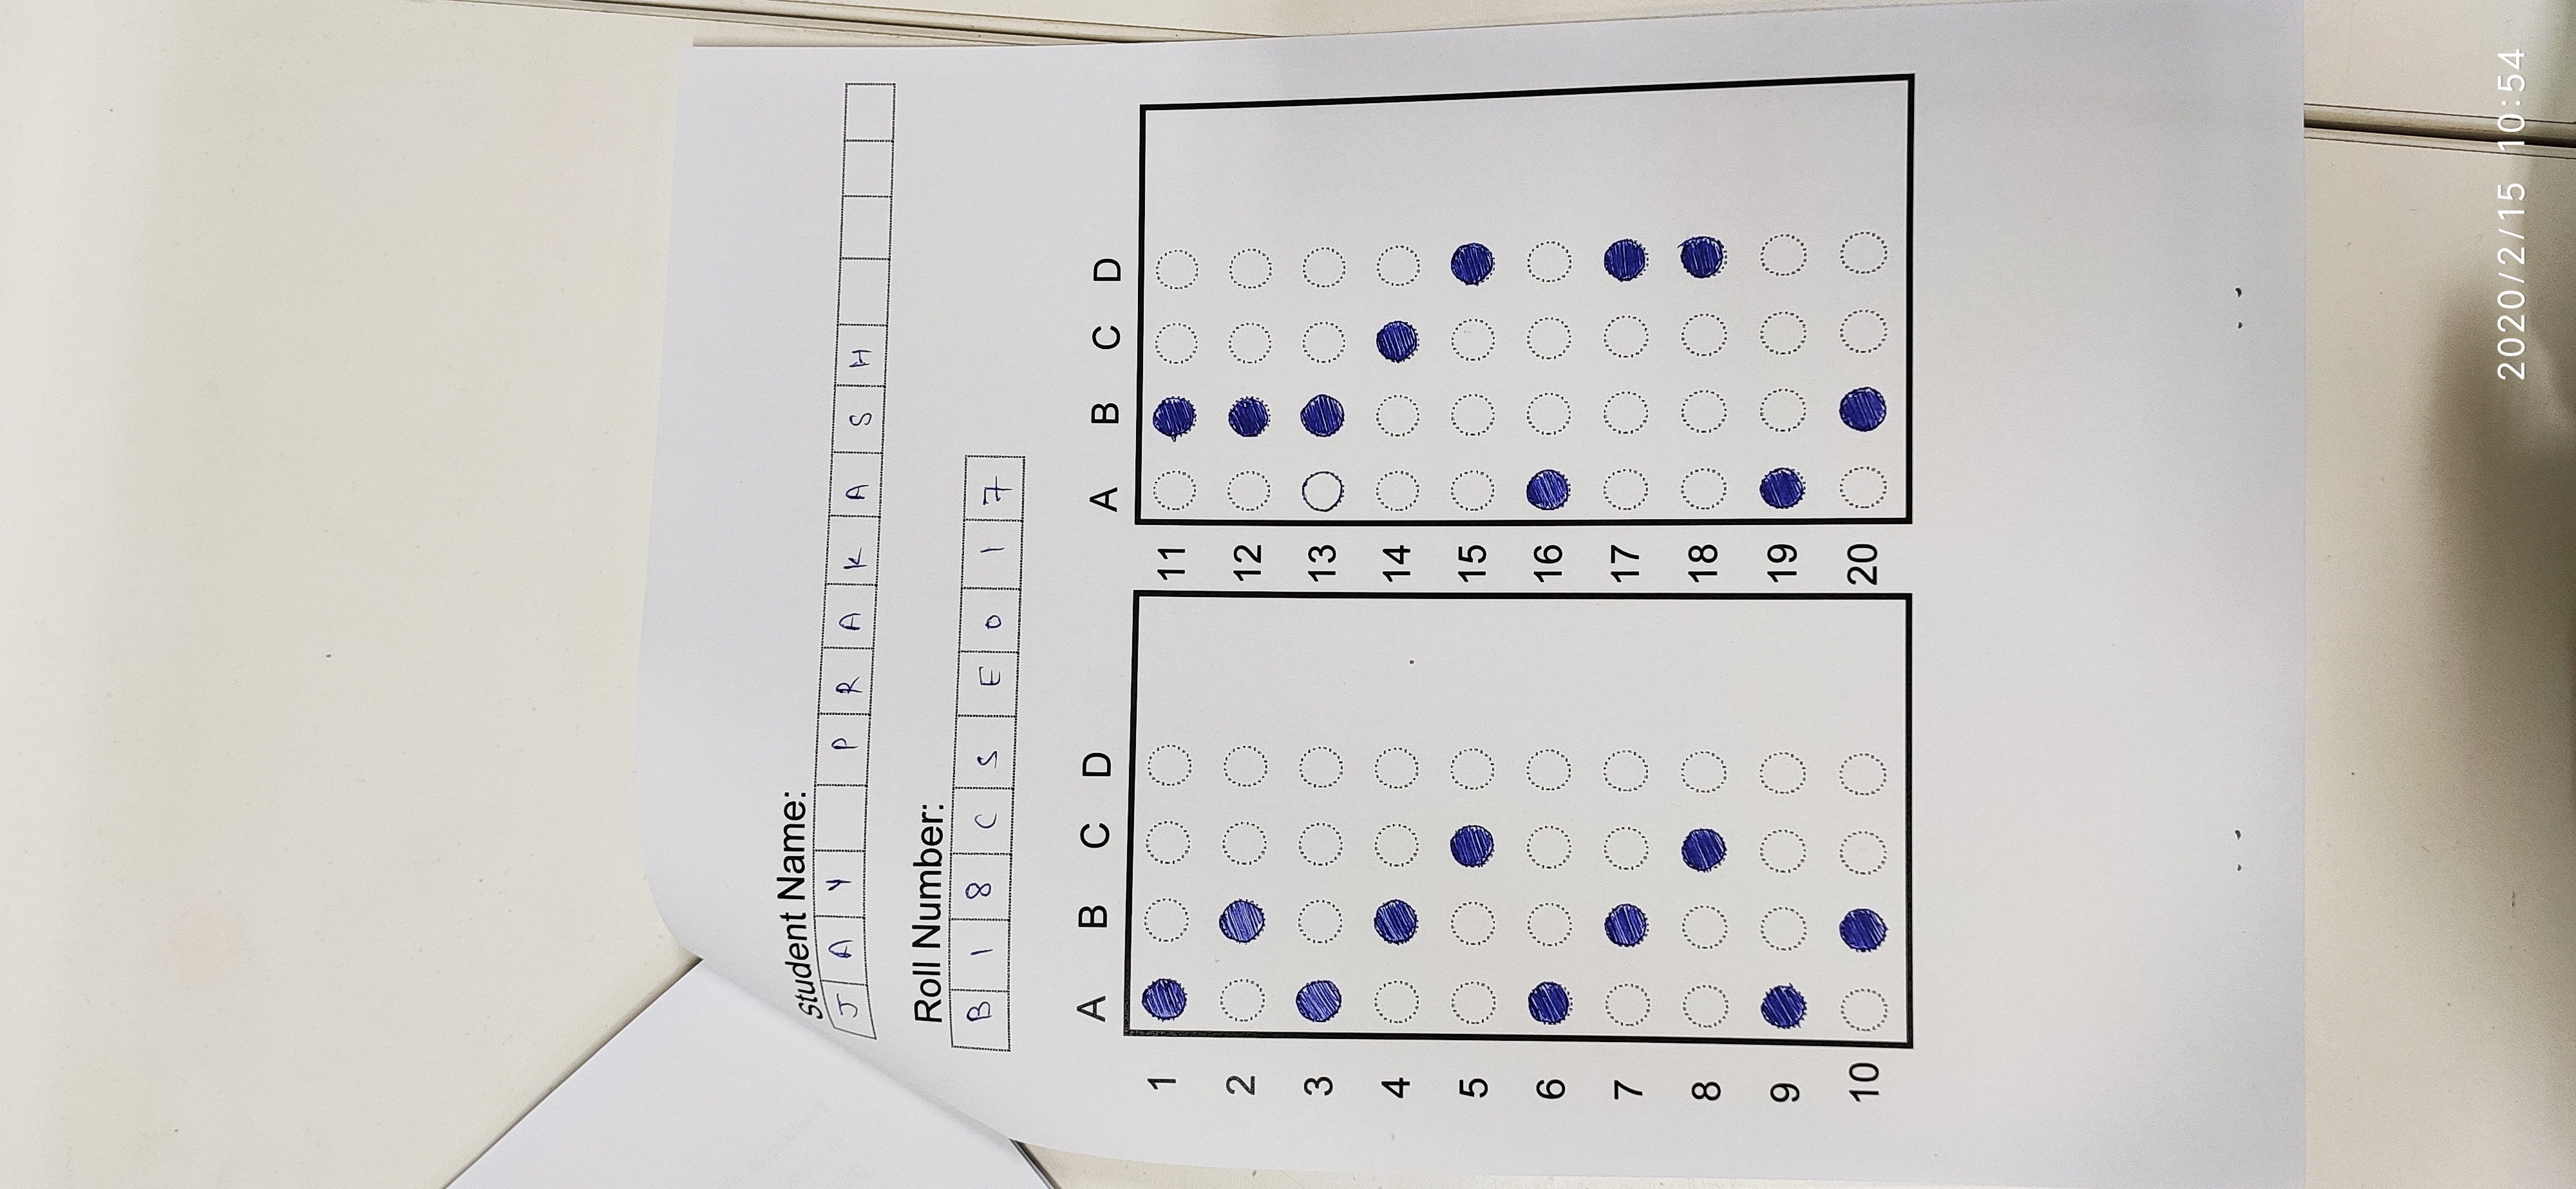 Student Name:
JAY PRAKASH
Roll Number:
B18CSE017
A B C D
1
2
3
4
5
6
7
8
9
10
A B C D
11
12
13
14
15
16
17
18
19
20
2020/2/15 10:54